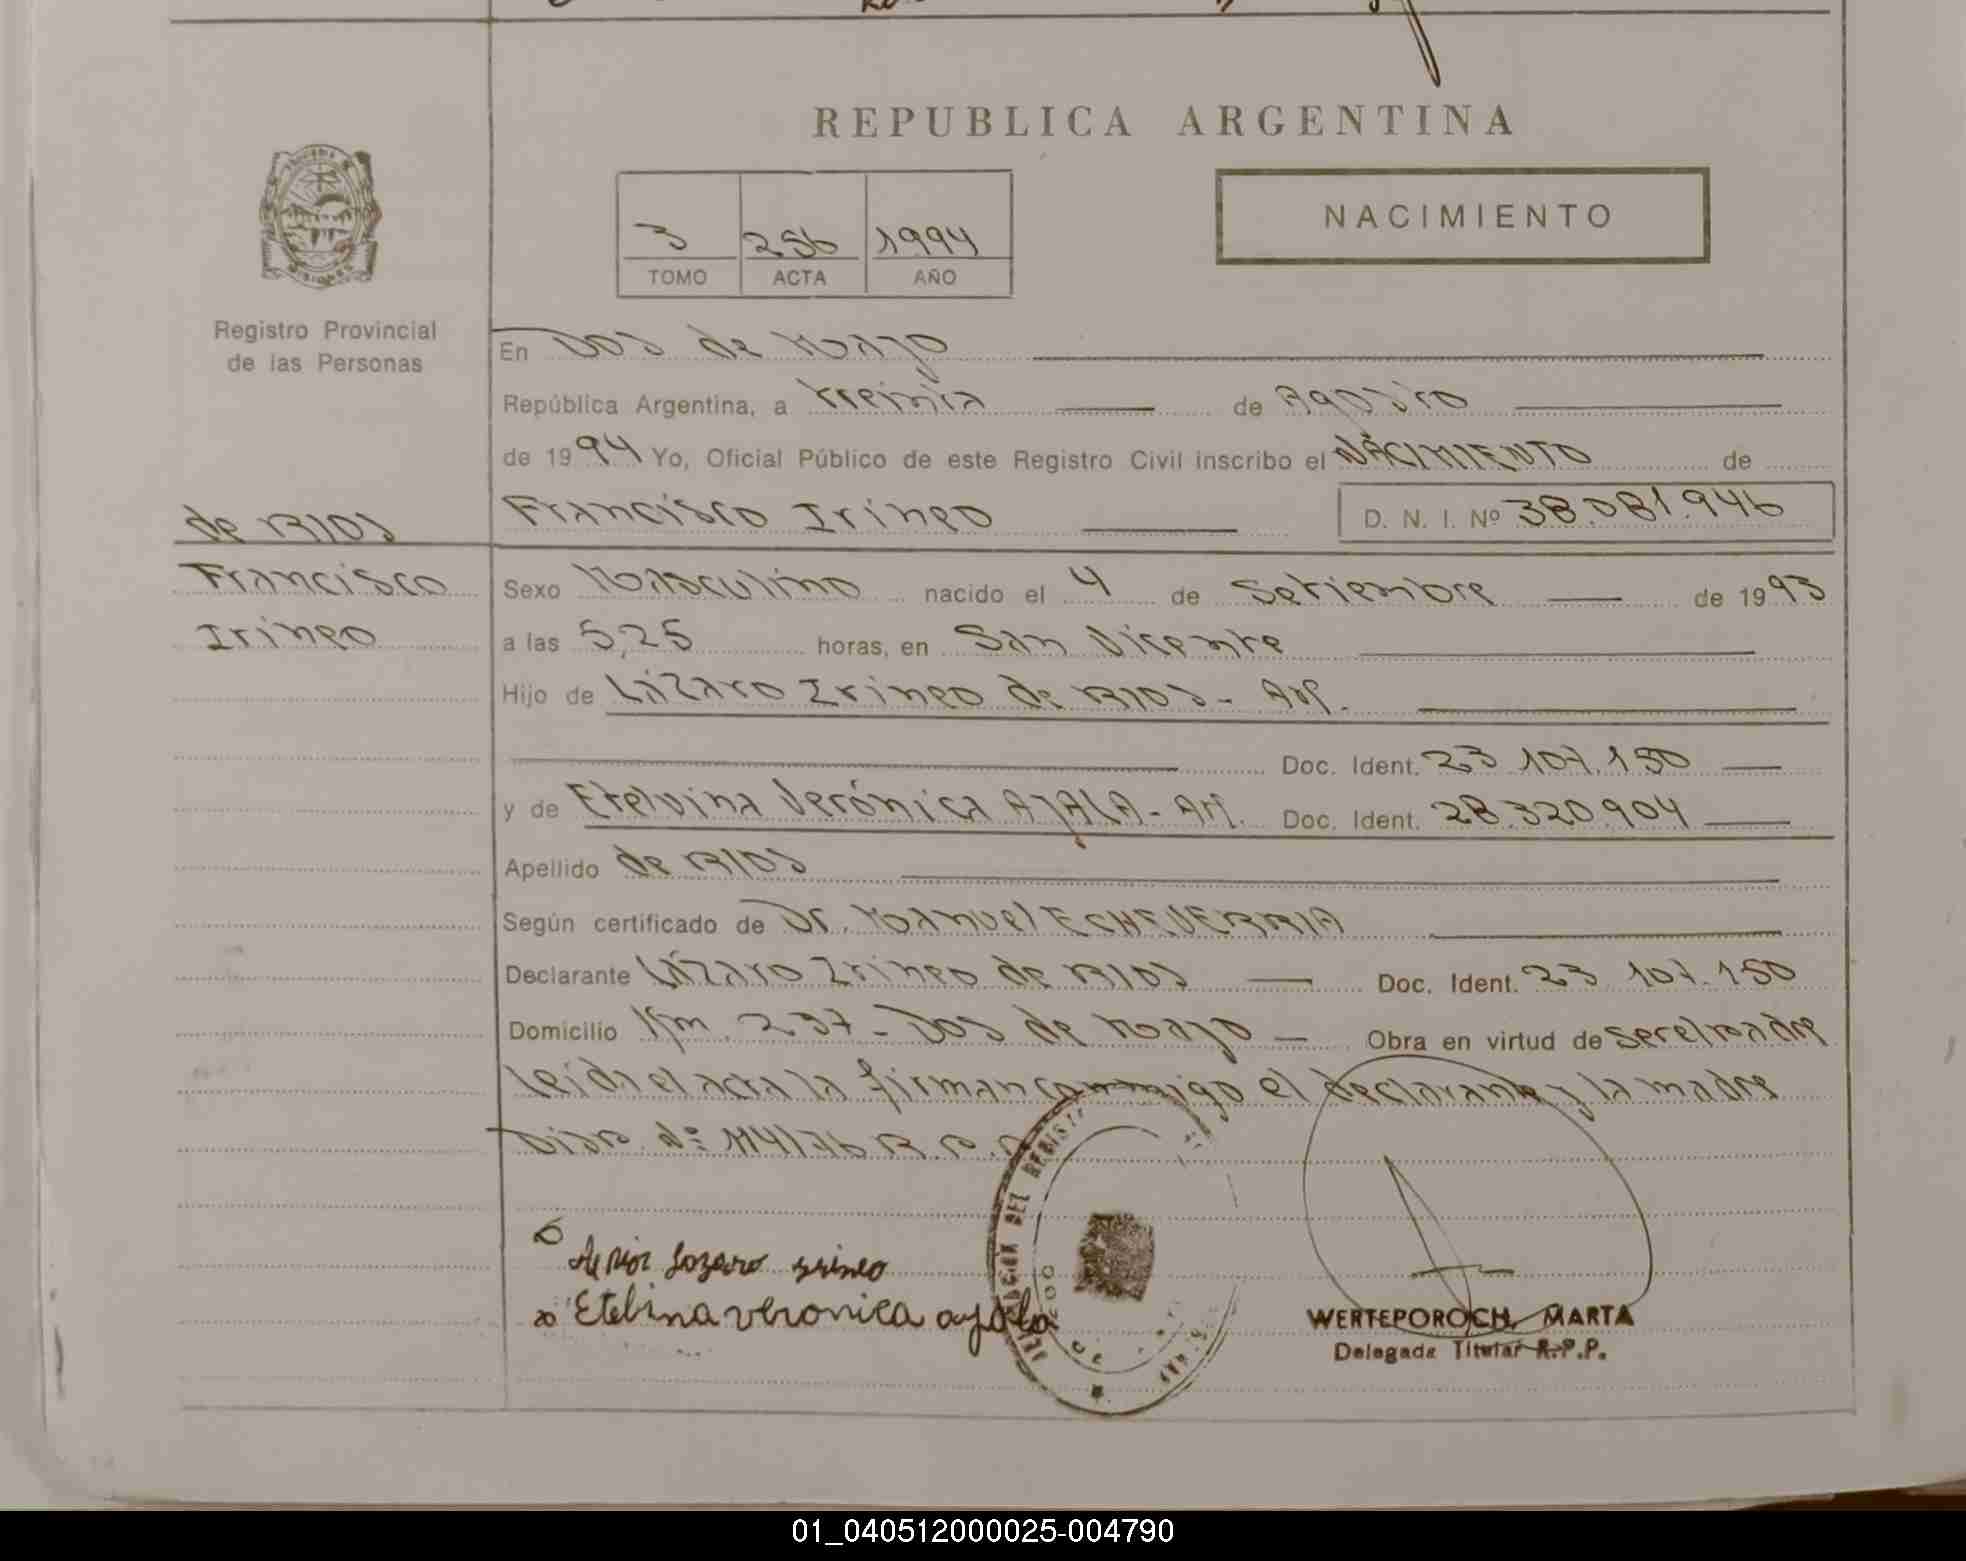 REPUBLICA ARGENTINA
NACIMIENTO
3 256 1994
TOMO ACTA AÑO
Registro Provincial
de las Personas
En Dos de Mayo
República Argentina, a treinta de Agosto
de 1994 Yo, Oficial Público de este Registro Civil inscribo el NACIMIENTO de
de RIOS
Francisco Irineo D. N. I. Nº 38.081.946
Francisco
Irineo
Sexo Masculino nacido el 4 de Setiembre de 1993
a las 5,25 horas, en San Vicente
Hijo de Lázaro Irineo de RIOS - Arg.
Doc. Ident. 23.107.150
y de Etelvina Verónica AYALA - Arg. Doc. Ident. 28.320.904
Apellido de RIOS
Según certificado de Dr. Manuel ECHEVERRIA
Declarante Lázaro Irineo de RIOS Doc. Ident. 23.107.150
Domicilio Km. 237 - Dos de Mayo Obra en virtud de ser el padre
leida el acta la firman conmigo el declarante y la madre
Disp. Nº 114/76 R.P.P.
de Rios Lozaro irineo
Etelbina veronica ayala
DEL REGIST
WERTEPOROCH, MARTA
Delegada Titular R.P.P.
01_040512000025-004790